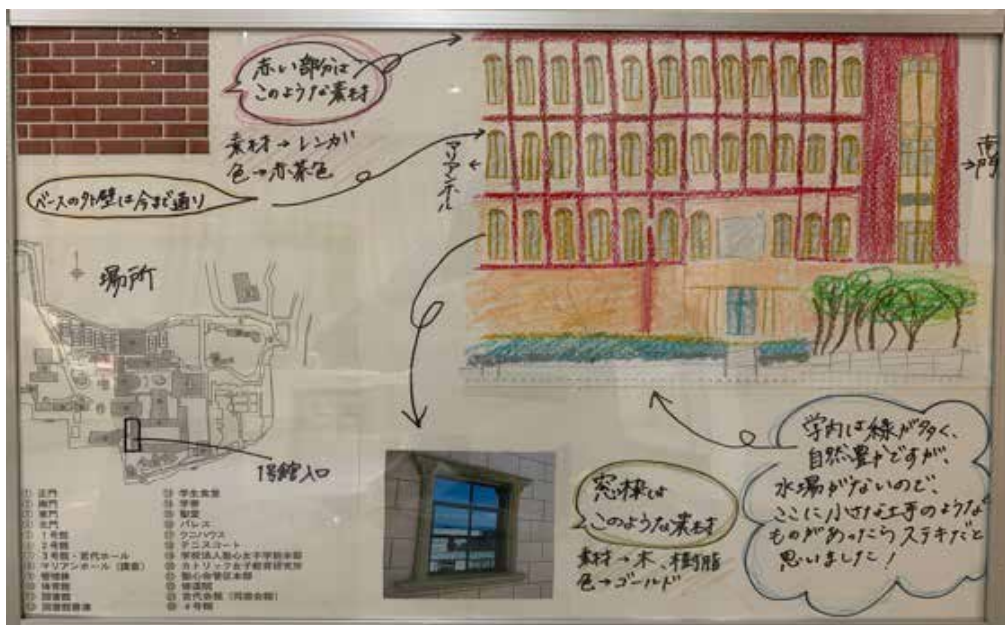 赤い部分は
このような素材
素材→レンガ
色→赤茶色
ベースの外壁は今まで通り
マリアンホール
南門
場所
1号館入口
① 正門
② 南門
③ 東門
④ 北門
⑤ 1号館
⑥ 2号館
⑦ 3号館・宮代ホール
⑧ マリアンホール(講堂)
⑨ 管理棟
⑩ 体育館
⑪ 図書館
⑫ 図書館書庫
学生食堂
学寮
聖堂
パレス
クニハウス
テニスコート
学校法人聖心女子学院本部
カトリック女子教育研究所
聖心会管区本部
修道院
宮代会館(同窓会館)
4号館
窓枠は
このような素材
素材→木、樹脂
色→ゴールド
学内は緑が多く、
自然豊かですが、
水場がないので、
ここに小さな土手のような
ものがあったらステキだと
思いました!